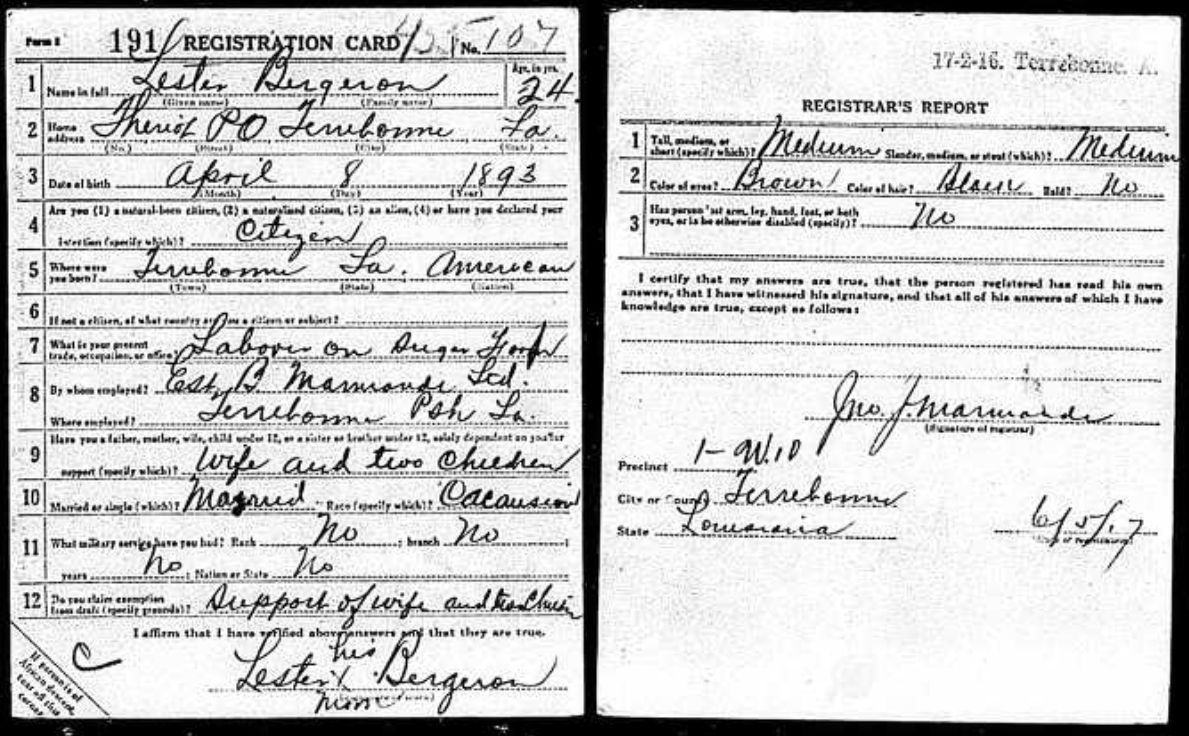 Form 1 191 REGISTRATION CARD No. 107
1 Name in full Lester Bergeron Age, in yrs. 24
(Given name) (Family name)
2 Home address Theriot PO Terrebonne La.
(No.) (Street) (City) (State)
3 Date of birth April 8 1893
(Month) (Day) (Year)
4 Are you (1) a natural-born citizen, (2) a naturalized citizen, (3) an alien, (4) or have you declared your
intention (specify which)? Citizen
5 Where were you born? Terrebonne La. American
(Town) (State) (Nation)
6 If not a citizen, of what country are you a citizen or subject?
7 What is your present trade, occupation, or office? Labover on Sugar
8 By whom employed? Est. B. Marmande Ltd.
Where employed? Terrebonne Psh La.
9 Have you a father, mother, wife, child under 12, or a sister or brother under 12, solely dependent on you for
support (specify which)? Wife and two Children
10 Married or single (which)? Married Race (specify which)? Cacausion
11 What military service have you had? Rank No ; branch No ;
years No ; Nation or State No
12 Do you claim exemption from draft (specify grounds)? Support of wife and two
I affirm that I have verified above answers and that they are true.
his
Lester X Bergeron
C
If person is of African descent, tear off this corner
17-2-16. Terrebonne. A.
REGISTRAR'S REPORT
1 Tall, medium, or short (specify which)? Medium Slender, medium, or stout (which)? Medium
2 Color of eyes? Brown Color of hair? Bald? No
3 Has person lost arm, leg, hand, foot, or both eyes, or is he otherwise disabled (specify)? No
I certify that my answers are true, that the person registered has read his own
answers, that I have witnessed his signature, and that all of his answers of which I have
knowledge are true, except as follows:
Jno. J. Marmande
(Signature of registrar)
Precinct 1-W.10
City or County Terrebonne
State Louisiana 6/5/17
(Date of registration)